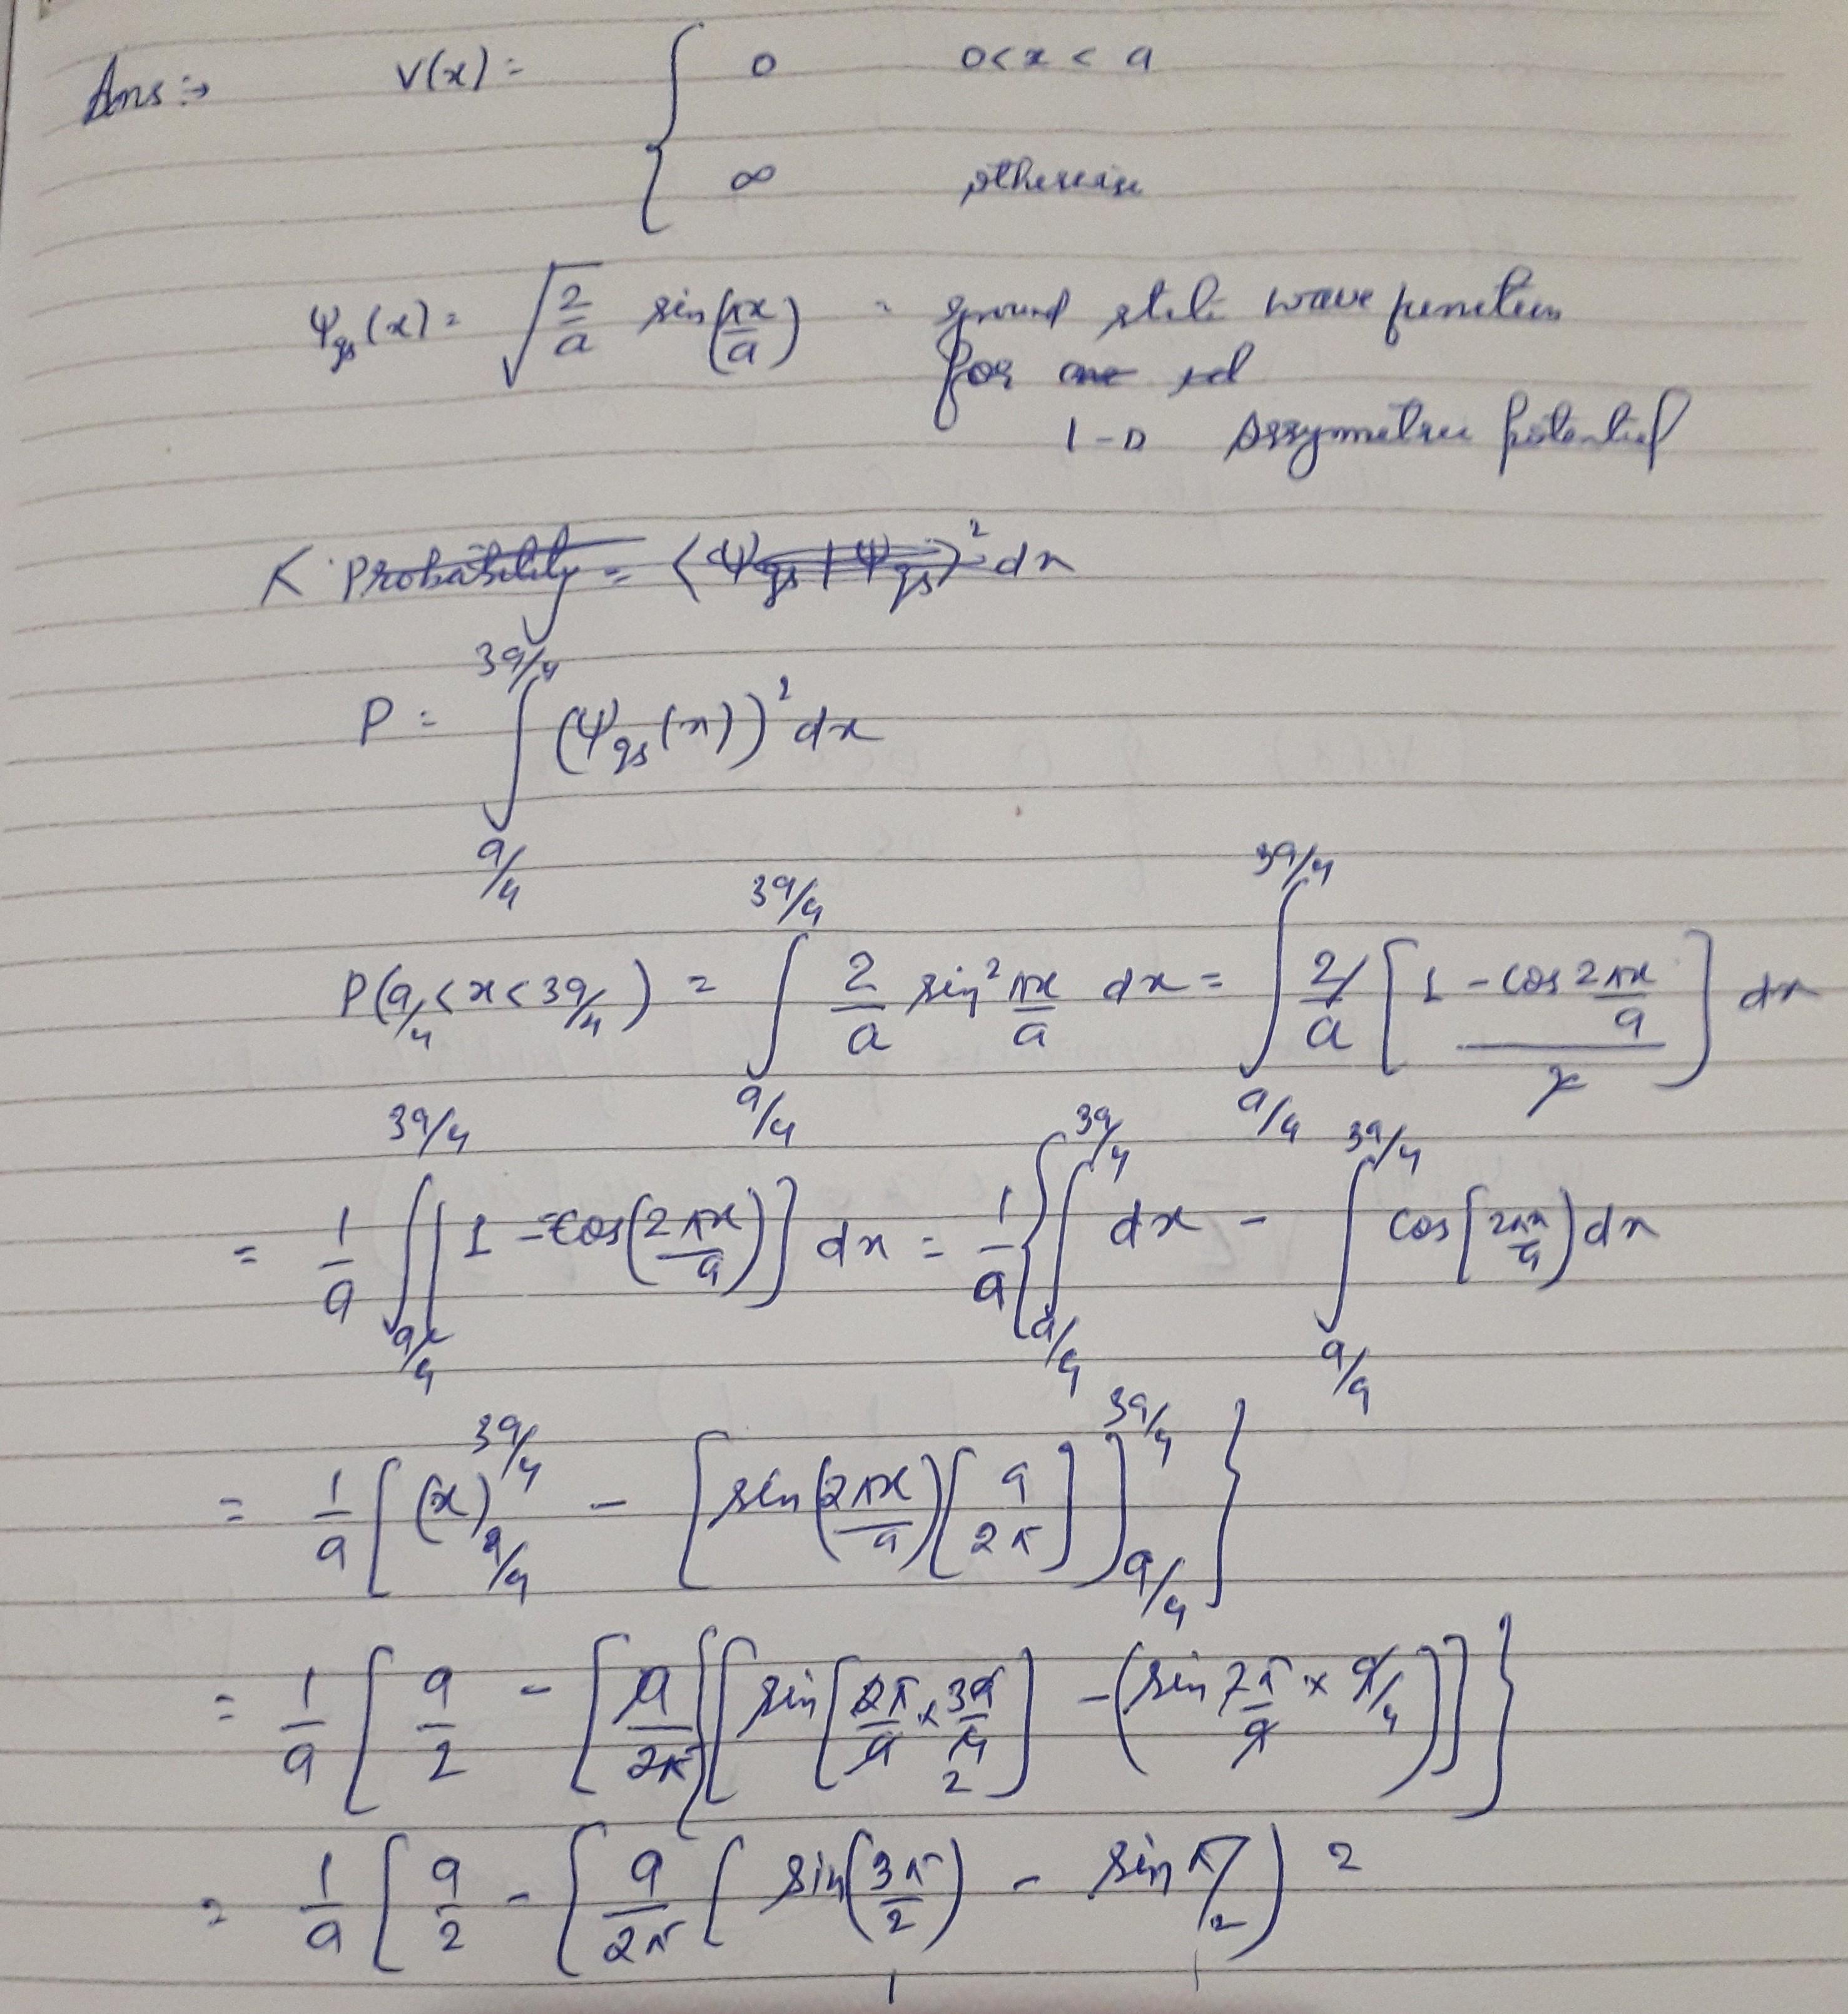 Ans :→ V(x) = { 0 0 < x < a
∞ otherwise
ψ_gs (x) = √(2/a) sin(πx/a) = ground state wave function
for one
1-D Assymetric potential
Probability = ⟨ψ_gs | ψ_gs⟩² dx
P = ∫_{a/4}^{3a/4} (ψ_gs (x))² dx
P(a/4 < x < 3a/4) = ∫_{a/4}^{3a/4} 2/a sin² πx/a dx = ∫_{a/4}^{3a/4} 2/a [ (1 - cos 2πx/a)/2 ] dx
= 1/a ∫_{a/4}^{3a/4} [ 1 - cos(2πx/a) ] dx = 1/a { ∫_{a/4}^{3a/4} dx - ∫_{a/4}^{3a/4} cos(2πx/a) dx
= 1/a [ (x)_{a/4}^{3a/4} - [ sin(2πx/a) [ a/2π ] ]_{a/4}^{3a/4} }
= 1/a [ a/2 - [ a/2π { [ sin [ 2π/a × 3a/4 ] - ( sin 2π/a × a/4 ) ] ] }
= 1/a [ a/2 - [ a/2π [ sin(3π/2) - sin π/2 ) =